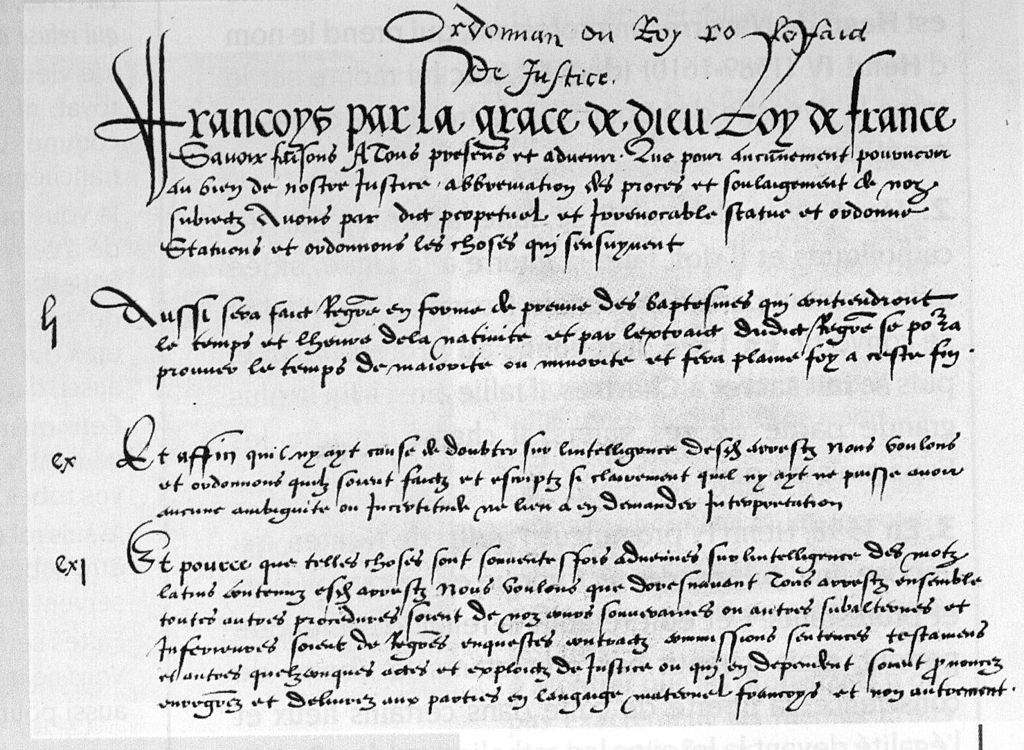 Ordonnan du Roy
de Justice.
Francoys par la grace de dieu Roy de france
Savoir faisons A Tous presens et advenir. Que pour aucunement pourveoir
au bien de nostre Justice, abbreviation des proces et soulaigement de noz
subiectz Avons par dict perpetuel et Irrevocable statue et ordonne
Statuons et ordonnons les choses qui sensuyvent
li Aussi sera faict Regre en forme de preuve des baptesmes qui contiendront
le temps et lheure dela nativite et par lextraict dudict Regre se porra
prouver le temps de maiorite ou minorite et fera plaine foy a ceste fin.
cx Et affin quil ny ayt cause de doubter sur lintelligence desd arrestz Nous voulons
et ordonnons quilz soient faictz et escriptz si clairement quil ny ayt ne puisse avoir
aucune ambiguite ou Incertitude ne lieu a en demander Interpretation
cxi Et pource que telles choses sont souventesfois advenues sur lintelligence des motz
latins contenuz esd arrestz Nous voulons que doresnavant Tous arrestz ensemble
toutes autres procedures soient de noz cours souveraines ou autres subalternes et
Inferieures soient de Regres enquestes contractz commissions sentences testamens
et autres quelzconques actes et exploictz de Justice ou qui en dependent soient prononcez
enregrez et delivrez aux parties en langaige maternel francoys et non autrement.